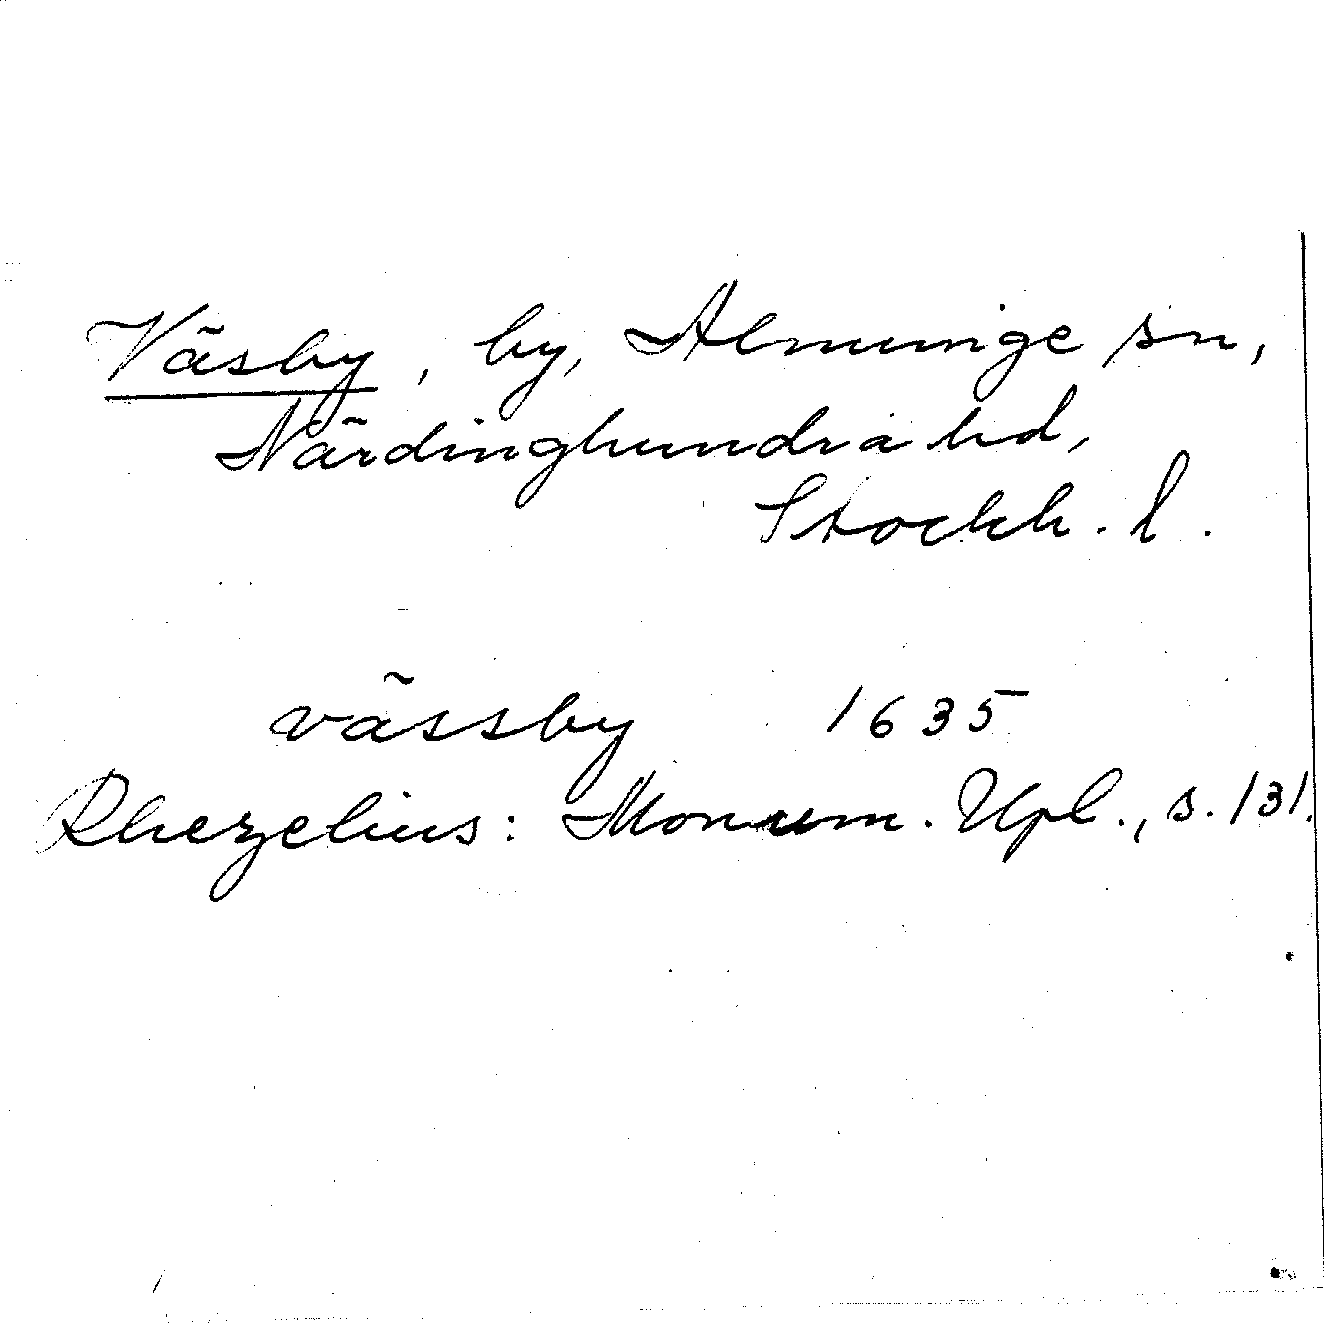 Väsby, by, Almunge sn,
Närdinghundra hd,
Stockh. l.
vässby 1635
Rhezelius: Monum. Upl., s. 131.